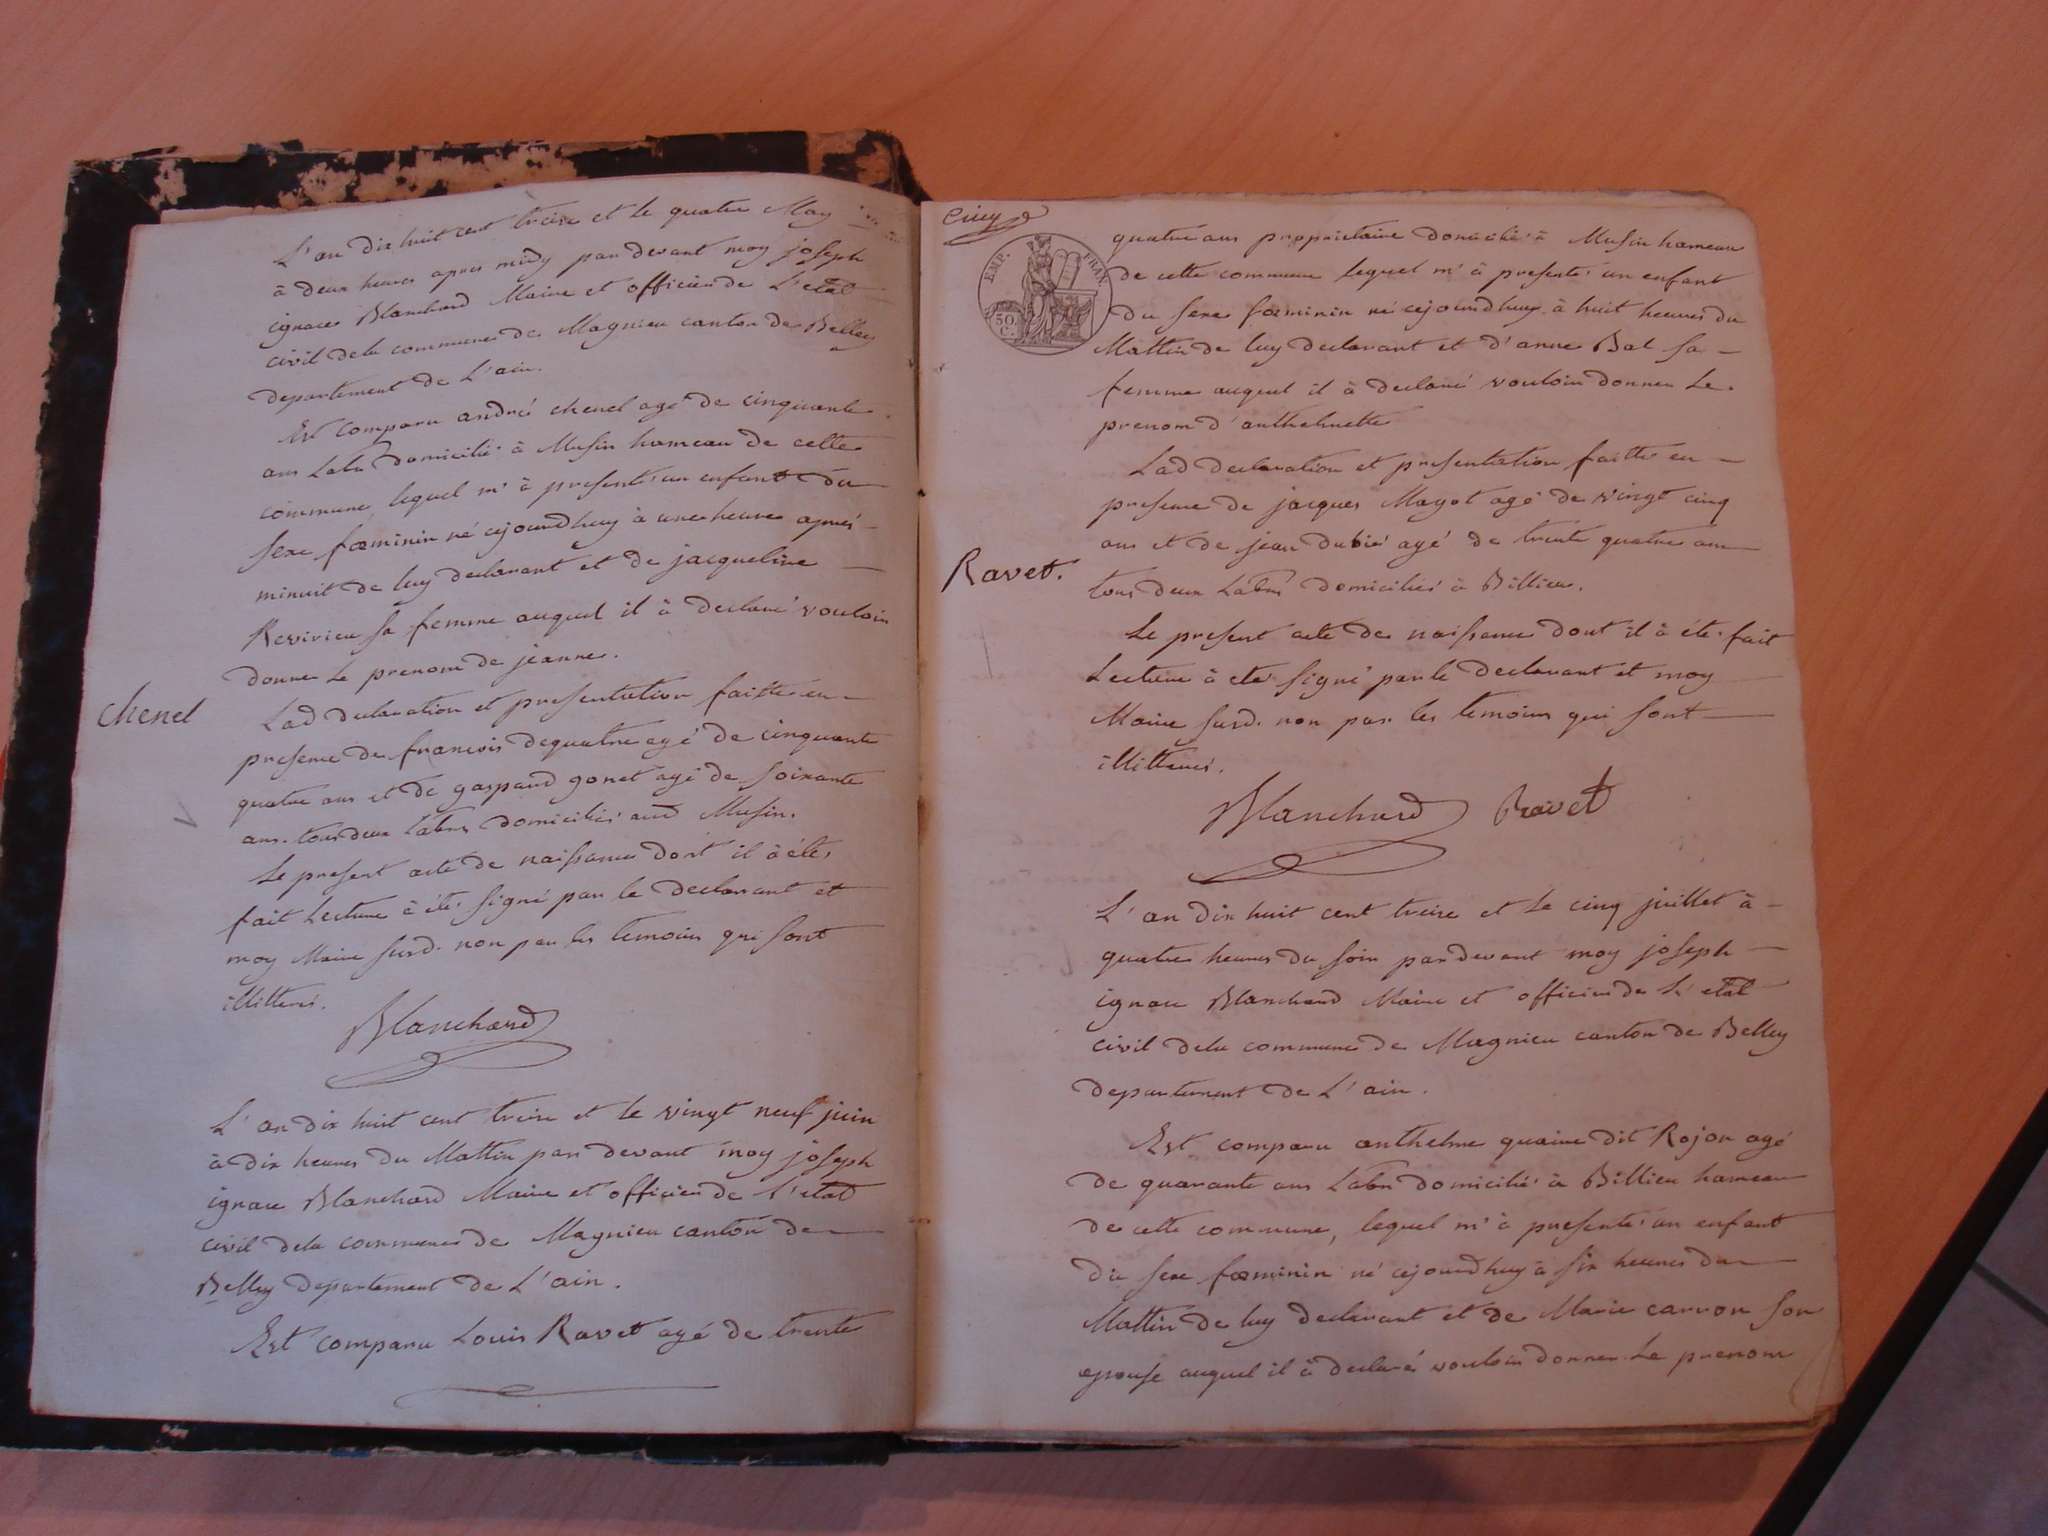 L'an dix huit cent treize et le quatre May
à deux heures apres midy pardevant moy joseph
ignace Blanchard Maire et officier de L'etat
civil dela commune de Magnieu canton de Belley
departement de L'ain.
Est comparu andré chenel agé de cinquante
ans Labr domicilié à Musin hameau de cette
commune, lequel m'à presenté un enfant du
sexe fœminin né cejourdhuy à une heure après
minuit de luy declarant et de jacqueline
Revirieu sa femme auquel il à declaré vouloir
donner Le prenom de jeanne.
chenel
Lad declaration et presentation faitte en
presence de francois dequatre agé de cinquante
quatre ans et de gaspard gonet agé de soixante
ans. tous deux Labrs domiciliés aud Musin.
Le present acte de naissance dont il à été
fait Lecture à été signé par le declarant et
moy Maire susd. non par les temoins qui sont
illitterés.
Blanchard
L'an dix huit cent treize et le vingt neuf juin
à dix heures du Mattin par devant moy joseph
ignace Blanchard Maire et officier de L'etat
civil dela commune de Magnieu canton de
Belley departement de L'ain.
Est comparu Louis Ravet agé de trente
EMP. FRAN.
50
C.
quatre ans proprietaire domicilié à Musin hameau
de cette commune lequel m'à presenté un enfant
du sexe fœminin né cejourdhuy à huit heures du
Mattin de luy declarant et d'anne Bal sa
femme auquel il à declaré vouloir donner Le
prenom d'anthelmette
Lad declaration et presentation faitte en
presence de jacques Magot agé de vingt cinq
ans et de jean dubié agé de trente quatre ans
Ravet.
tous deux Labrs domiciliés à Billieu.
Le present acte de naissance dont il à été fait
Lecture à eté signé par le declarant et moy
Maire susd. non par les temoins qui sont
illitterés.
Blanchard Ravet
L'an dix huit cent treize et Le cinq juillet à
quatre heures du soir pardevant moy joseph
ignace Blanchard Maire et officier de L'etat
civil dela commune de Magnieu canton de Belley
departement de L'ain.
Est comparu anthelme quaine dit Rojon agé
de quarante ans Labr domicilié à Billieu hameau
de cette commune, lequel m'à presenté un enfant
du sexe fœminin né cejourdhuy à six heures du
Mattin de luy declarant et de Marie carron son
epouse auquel il à declaré vouloir donner Le prenom